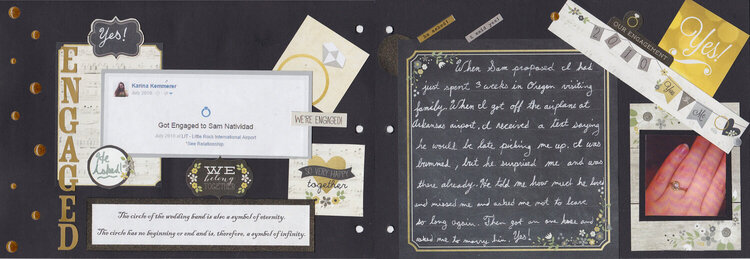 ENGAGED
Yes!
Karina Kemmerer
July 2010
Got Engaged to Sam Natividad
July 2010 at LIT - Little Rock International Airport
*See Relationship
He
Asked!
WE
belong
TOGETHER
WE'RE ENGAGED!
SO VERY HAPPY
together
The circle of the wedding band is also a symbol of eternity.
The circle has no beginning or end and is, therefore, a symbol of infinity.
he asked!
i said yes!
When Sam proposed I had
just spent 3 weeks in Oregon visiting
family. When I got off the airplane at
Arkansas airport, I received a text saying
he would be late picking me up. I was
bummed, but he surprised me and was
there already. He told me how much he loved
and missed me and asked me not to leave
so long again. Then got on one knee and
asked me to marry him. Yes!
OUR ENGAGEMENT
Yes!
2010
You
Me